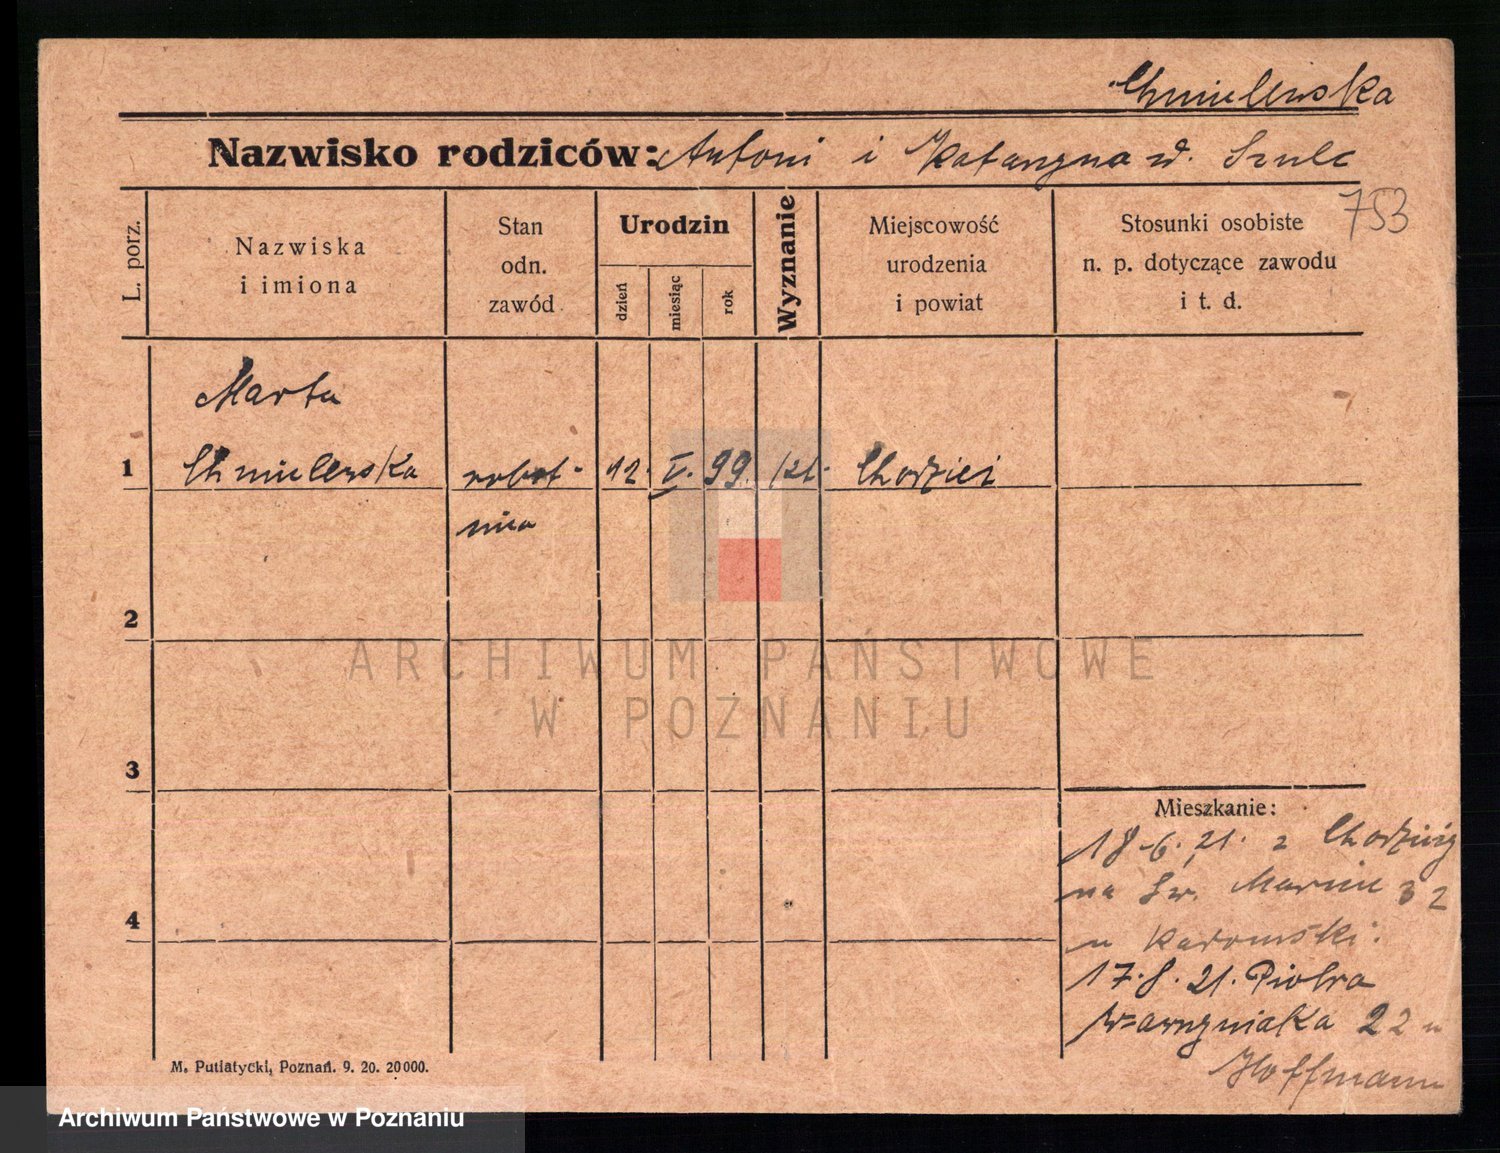 Chmielewska
Nazwisko rodziców: Antoni i Katarzyna d. Szulc
753
L. porz.
Nazwiska
i imiona
Stan
odn.
zawód
Urodzin
dzień
miesiąc
rok
Wyznanie
Miejscowość
urodzenia
i powiat
Stosunki osobiste
n. p. dotyczące zawodu
i t. d.
Marta
1 Chmielewska robot- 12. V. 99. kat. Chodzież
nica
2
3
4
ARCHIWUM PAŃSTWOWE
W POZNANIU
Mieszkanie:
18.6.21. z Chodzieży
na Św. Marcin 32
u Radomski.
17.8.21. Piotra
Wawrzyniaka 22 u
Hoffmann
M. Putiatycki, Poznań. 9. 20. 20000.
Archiwum Państwowe w Poznaniu